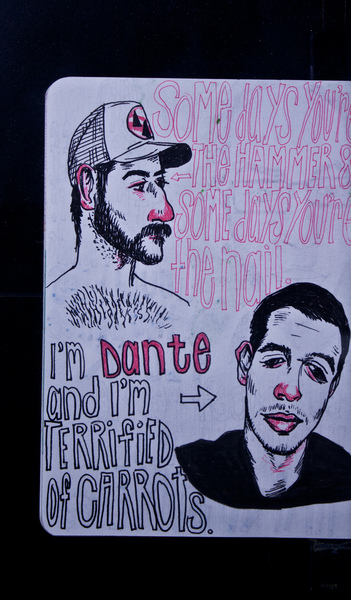 Some days You're
THE HAMMER &
SOME days You're
the nail.
I'm Dante
and I'm
TERRIfiED
of CARROTs.